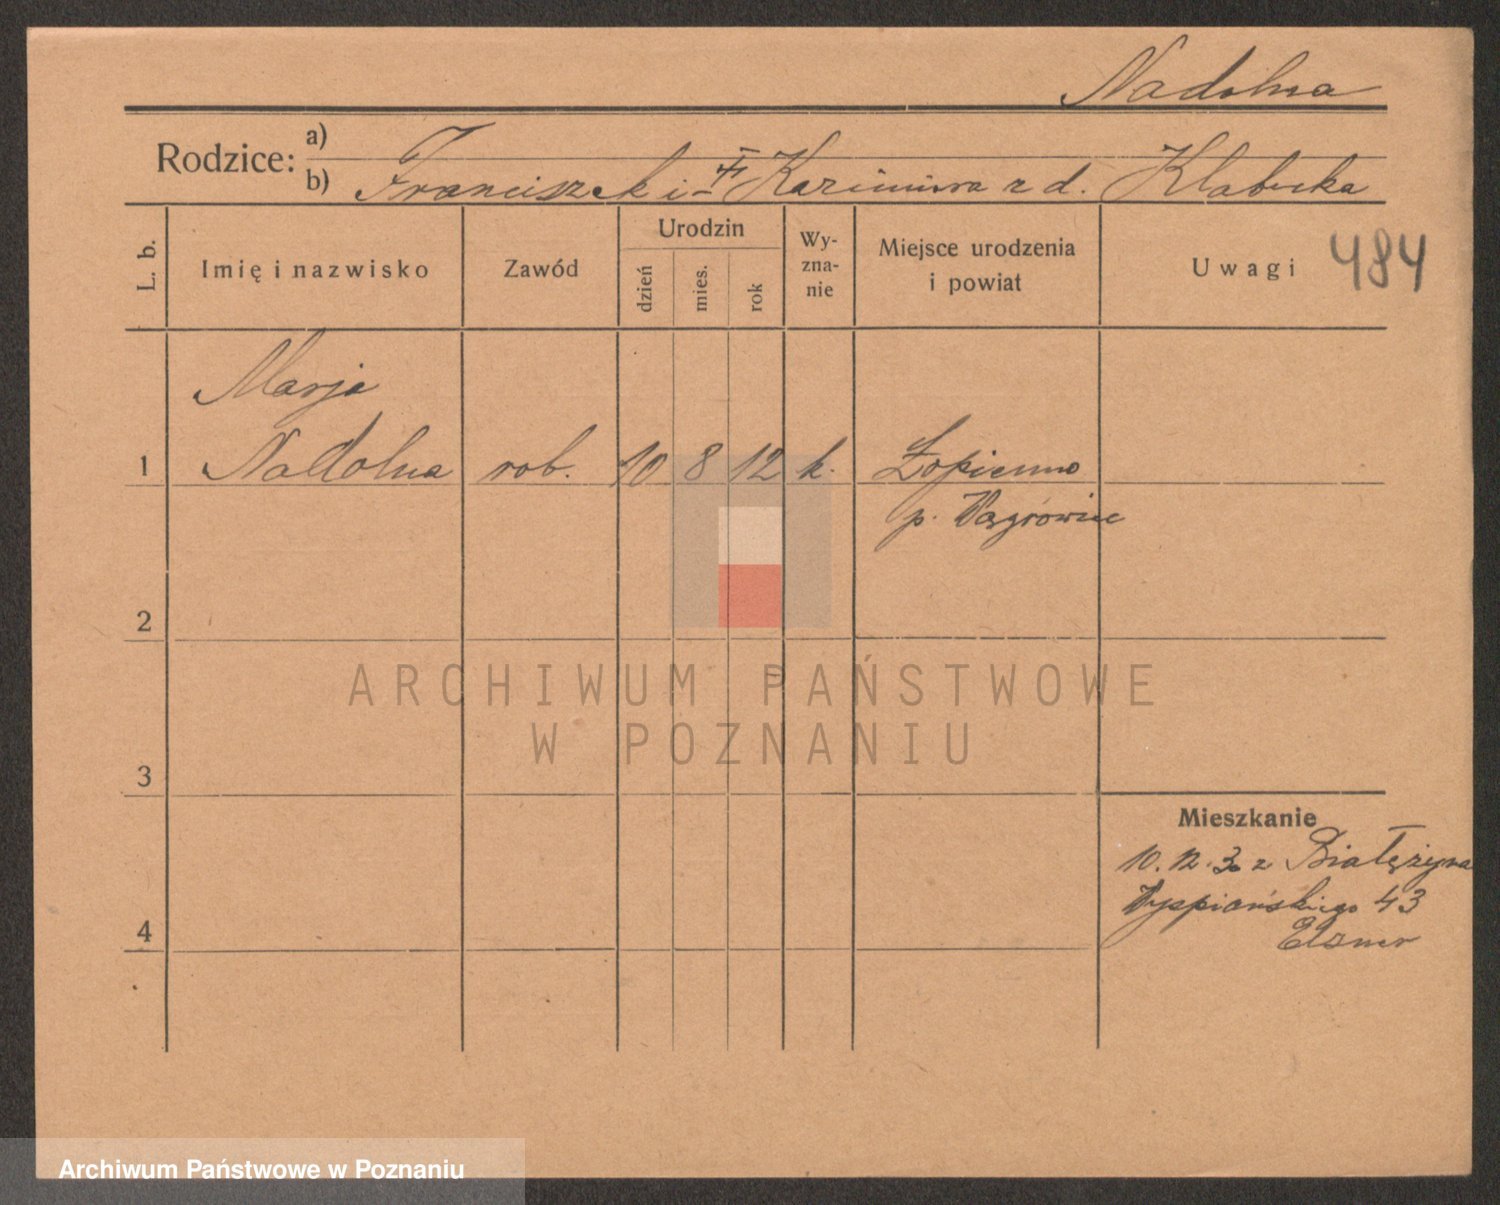 Nadolna
Rodzice: a)
b) Franciszek i Kazimiera z d. Klabucka
L. b.
Imię i nazwisko
Zawód
Urodzin
dzień
mies.
rok
Wy-
zna-
nie
Miejsce urodzenia
i powiat
Uwagi 484
Marja
1 Nadolna rob. 10 8 12 k. Łopienno
p. Wągrowiec
2
ARCHIWUM PAŃSTWOWE
W POZNANIU
3
Mieszkanie
10.12.30 z Białężyna
Wyspiańskiego 43
Elsner
4
Archiwum Państwowe w Poznaniu